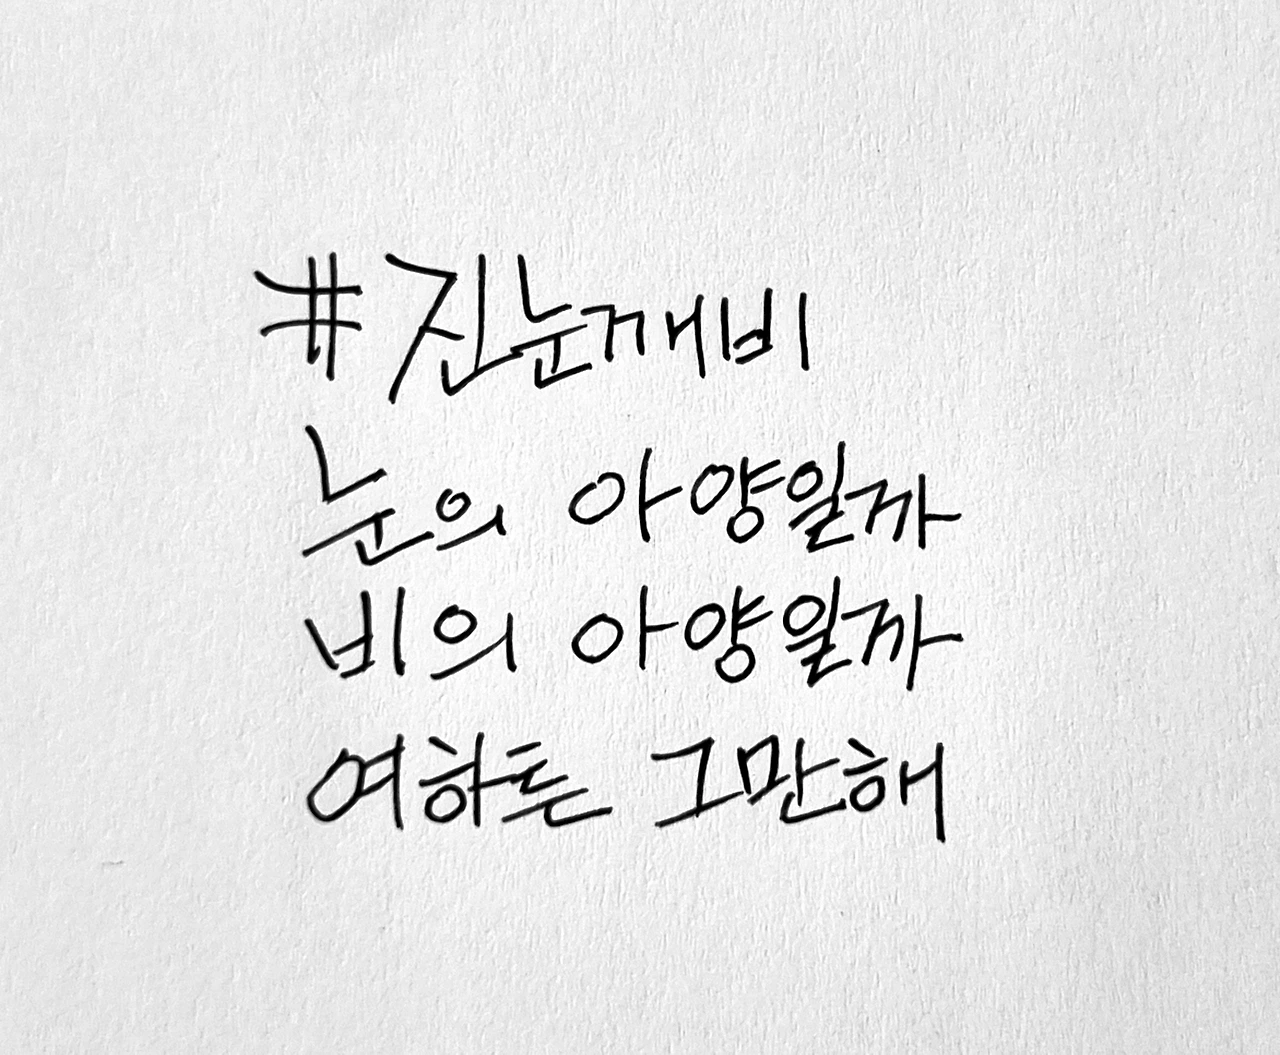 #진눈깨비
눈의 아양일까
비의 아양일까
여하튼 그만해